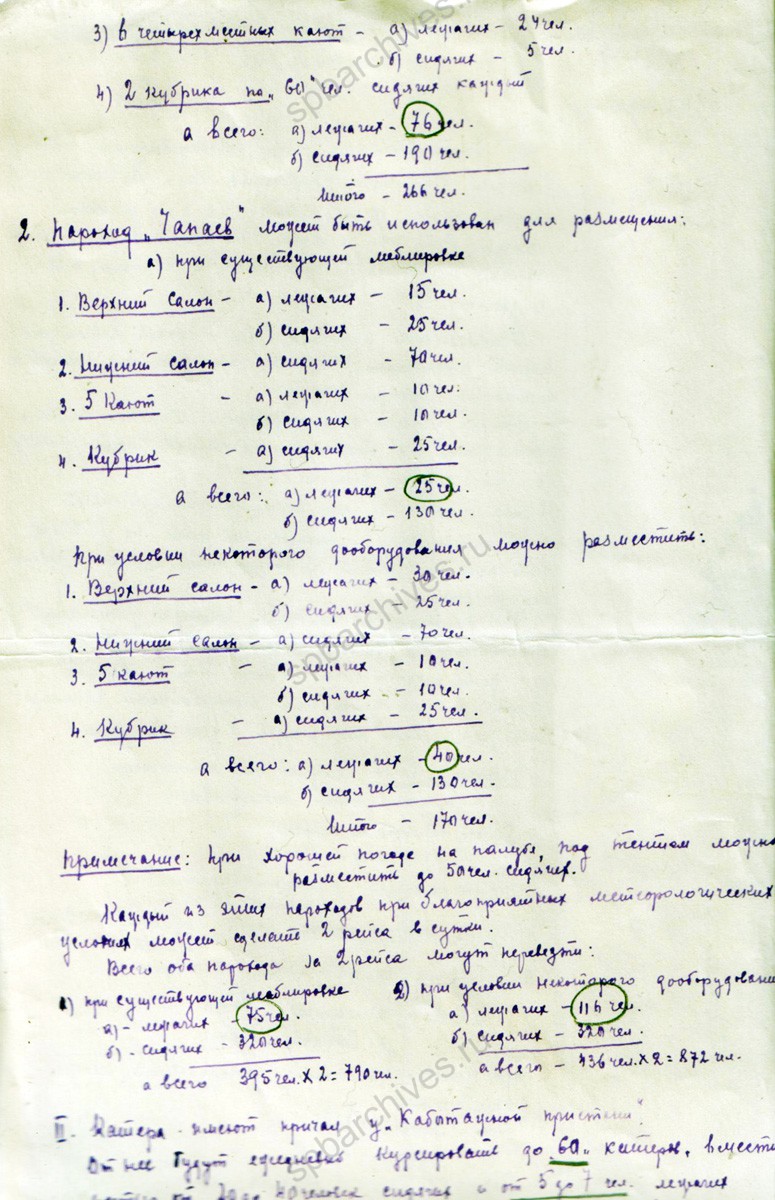 3) в четырехместных кают – а) лежачих – 24 чел.
б) сидячих – 5 чел.
4) 2 Кубрика по „60" чел. сидячих каждый
а всего: а) лежачих – 76 чел.
б) сидячих – 190 чел.
Итого – 266 чел.
2. Пароход „Чапаев" может быть использован для размещения:
а) при существующей меблировке
1. Верхний салон – а) лежачих – 15 чел.
б) сидячих – 25 чел.
2. Нижний салон – а) сидячих – 70 чел.
3. 5 Кают – а) лежачих – 10 чел.
б) сидячих – 10 чел.
4. Кубрик – а) сидячих – 25 чел.
а всего: а) лежачих – 25 чел.
б) сидячих – 130 чел.
При условии некоторого дооборудования можно разместить:
1. Верхний салон – а) лежачих – 30 чел.
б) сидячих – 25 чел.
2. Нижний салон – а) сидячих – 70 чел.
3. 5 кают – а) лежачих – 10 чел.
б) сидячих – 10 чел.
4. Кубрик – а) сидячих – 25 чел.
а всего: а) лежачих – 40 чел.
б) сидячих – 130 чел.
Итого – 170 чел.
Примечание: При хорошей погоде на палубе, под тентом можно
разместить до 50 чел. сидячих.
Каждый из этих пароходов при благоприятных метеорологических
условиях может сделать 2 рейса в сутки.
Всего оба парохода за 2 рейса могут перевезти:
1) при существующей меблировке
а) – лежачих – 75 чел.
б) – сидячих – 320 чел.
а всего 395 чел. × 2 = 790 чел.
2) при условии некоторого дооборудовани
а) лежачих – 116 чел.
б) сидячих – 320 чел.
а всего – 436 чел. × 2 = 872 чел.
II. Катера – имеют причал у „Каботажной пристани".
От нее будут ежедневно курсировать до „60" катеров, вмести
40 человек сидячих и от 5 до 7 чел. лежачих
spbarchives.ru
spbarchives.ru
spbarchives.ru